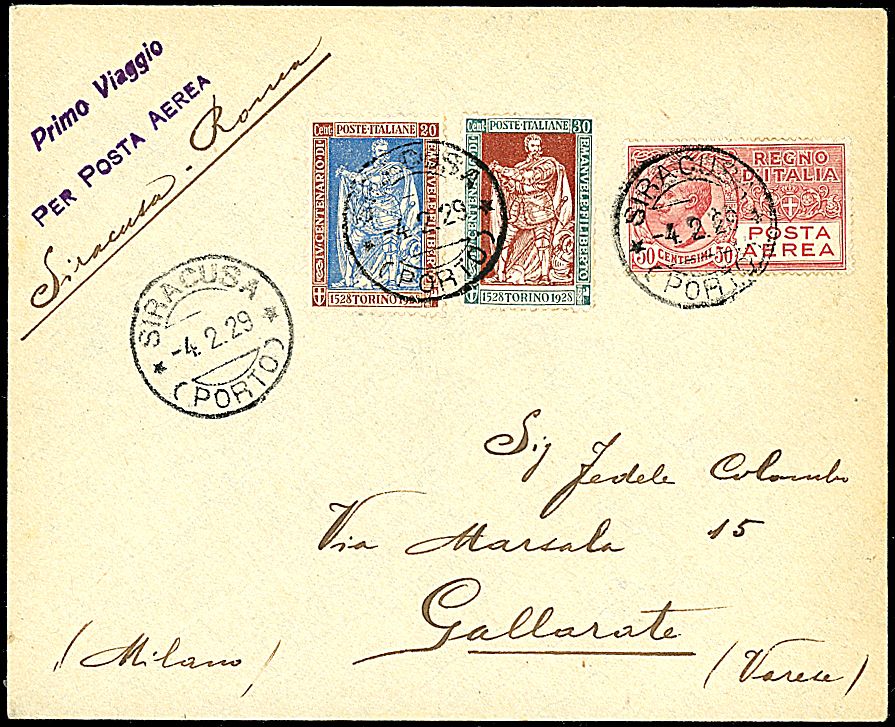 Primo Viaggio
PER POSTA AEREA
Siracusa - Roma
Cent. POSTE·ITALIANE 20
IV CENTENARIO DI
EMANVELE FILIBERTO
1528 TORINO 1928
Cent. POSTE·ITALIANE 30
EMANVELE FILIBERTO
1528 TORINO 1928
REGNO
D'ITALIA
POSTA
AEREA
50 CENTESIMI 50
SIRACUSA
-4.2.29
(PORTO)
SIRACUSA
-4.2.29
(PORTO)
SIRACUSA
-4.2.29
(PORTO)
Sig Fedele Colombo
Via Marsala 15
Gallarate
(Milano)
(Varese)